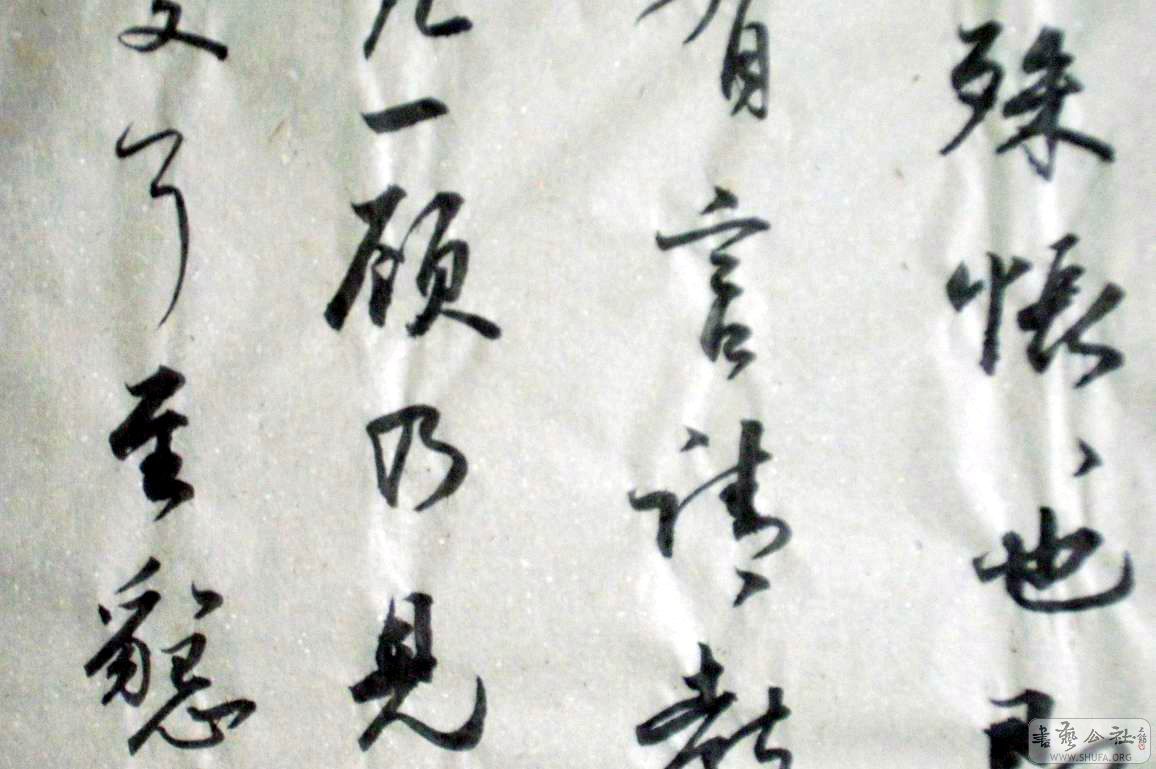 殊悵、也
有言請、
一顧乃見
至懇
書藝公社
WWW.SHUFA.ORG